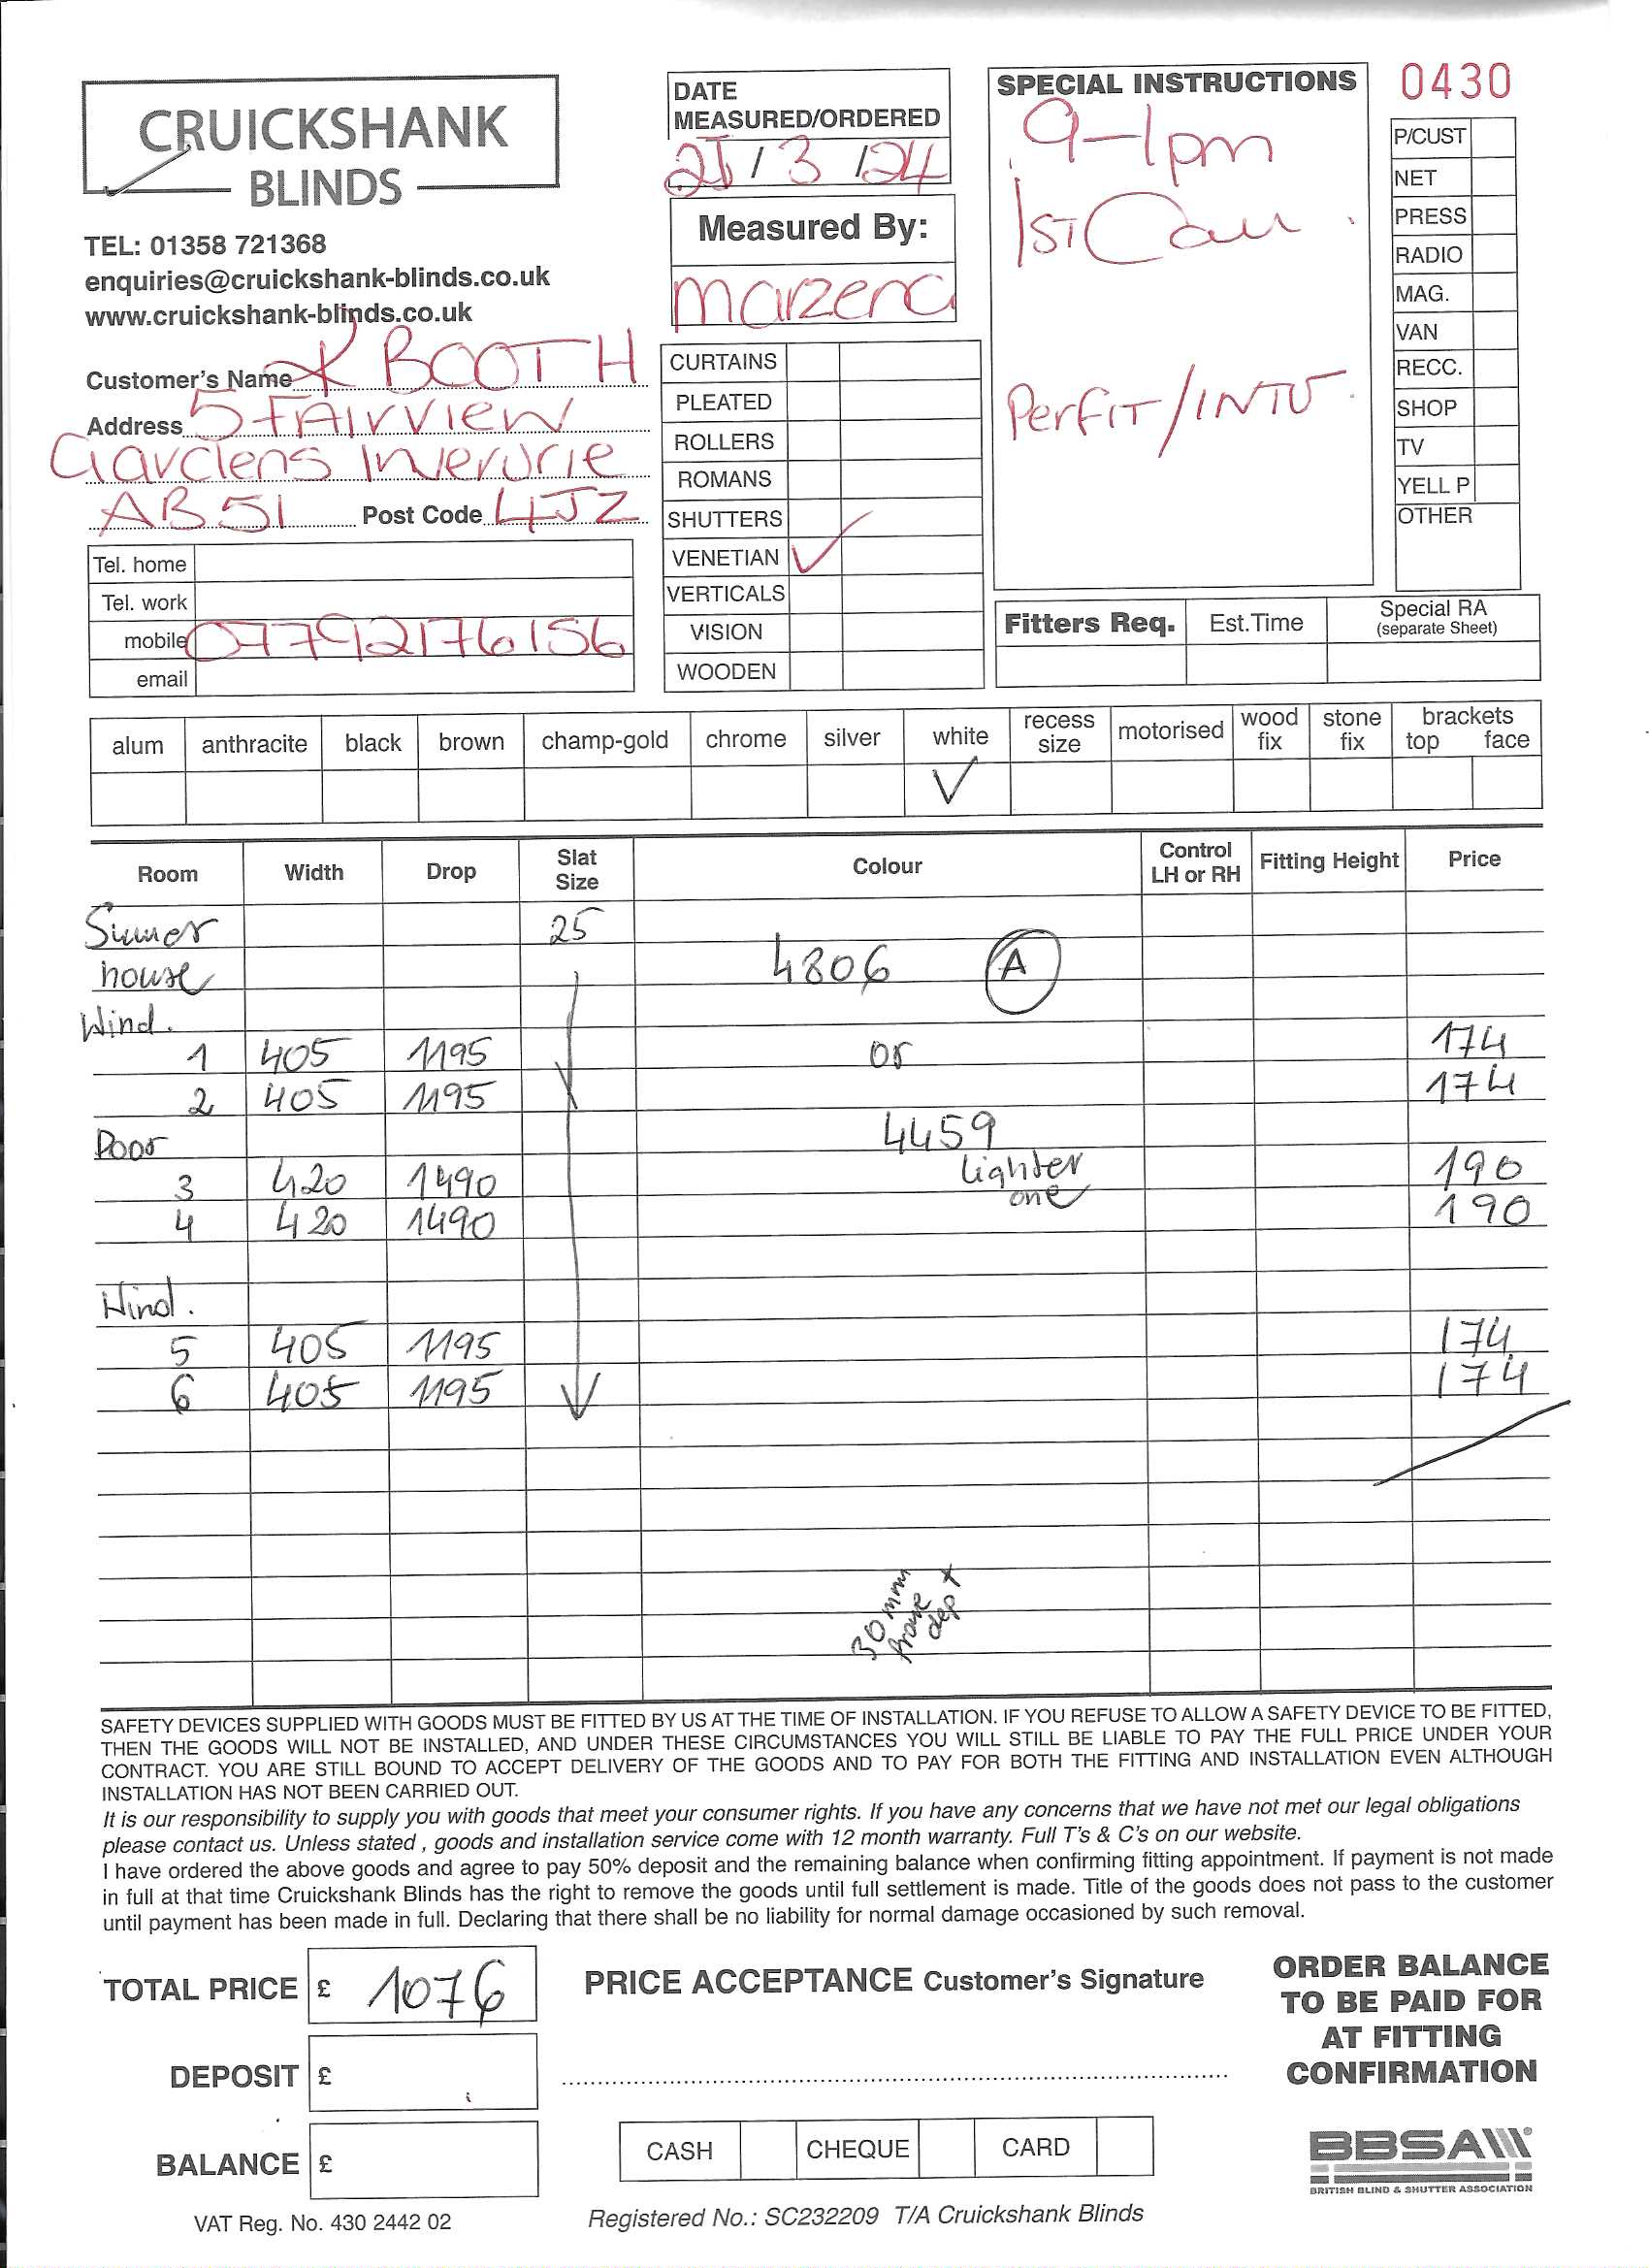 CRUICKSHANK
BLINDS
TEL: 01358 721368
enquiries@cruickshank-blinds.co.uk
www.cruickshank-blinds.co.uk
Customer's Name K BOOTH
Address 5 FAIRVIEW
Gardens Inverurie
AB51 Post Code 4JZ
Tel. home
Tel. work
mobile 07792176156
email
DATE
MEASURED/ORDERED
/ 3 /24
Measured By:
Marzena
CURTAINS
PLEATED
ROLLERS
ROMANS
SHUTTERS
VENETIAN ✓
VERTICALS
VISION
WOODEN
SPECIAL INSTRUCTIONS
9-1pm
1ST Call
PerFIT/INTU
0430
P/CUST
NET
PRESS
RADIO
MAG.
VAN
RECC.
SHOP
TV
YELL P
OTHER
Fitters Req. Est.Time Special RA
(separate Sheet)
alum anthracite black brown champ-gold chrome silver white recess size motorised wood fix stone fix brackets top face
✓
Room Width Drop Slat Size Colour Control LH or RH Fitting Height Price
Sumer 25
house 4806 A
Wind.
1 405 1195 or 174
2 405 1195 174
Door 4459
3 420 1490 lighter 190
one
4 420 1490 190
Wind.
5 405 1195 174
6 405 1195 174
30 mm
frame
dept
SAFETY DEVICES SUPPLIED WITH GOODS MUST BE FITTED BY US AT THE TIME OF INSTALLATION. IF YOU REFUSE TO ALLOW A SAFETY DEVICE TO BE FITTED,
THEN THE GOODS WILL NOT BE INSTALLED, AND UNDER THESE CIRCUMSTANCES YOU WILL STILL BE LIABLE TO PAY THE FULL PRICE UNDER YOUR
CONTRACT. YOU ARE STILL BOUND TO ACCEPT DELIVERY OF THE GOODS AND TO PAY FOR BOTH THE FITTING AND INSTALLATION EVEN ALTHOUGH
INSTALLATION HAS NOT BEEN CARRIED OUT.
It is our responsibility to supply you with goods that meet your consumer rights. If you have any concerns that we have not met our legal obligations
please contact us. Unless stated , goods and installation service come with 12 month warranty. Full T's & C's on our website.
I have ordered the above goods and agree to pay 50% deposit and the remaining balance when confirming fitting appointment. If payment is not made
in full at that time Cruickshank Blinds has the right to remove the goods until full settlement is made. Title of the goods does not pass to the customer
until payment has been made in full. Declaring that there shall be no liability for normal damage occasioned by such removal.
TOTAL PRICE £ 1076
DEPOSIT £
BALANCE £
VAT Reg. No. 430 2442 02
PRICE ACCEPTANCE Customer's Signature
CASH CHEQUE CARD
Registered No.: SC232209 T/A Cruickshank Blinds
ORDER BALANCE
TO BE PAID FOR
AT FITTING
CONFIRMATION
BBSA
BRITISH BLIND & SHUTTER ASSOCIATION